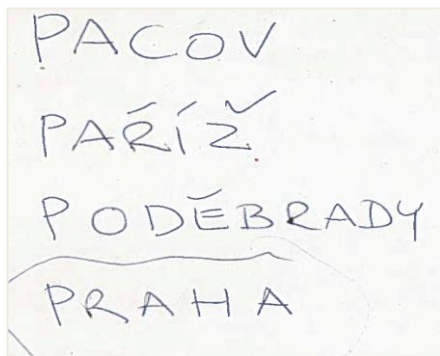 PACOV
PAŘÍŽ
PODĚBRADY
PRAHA